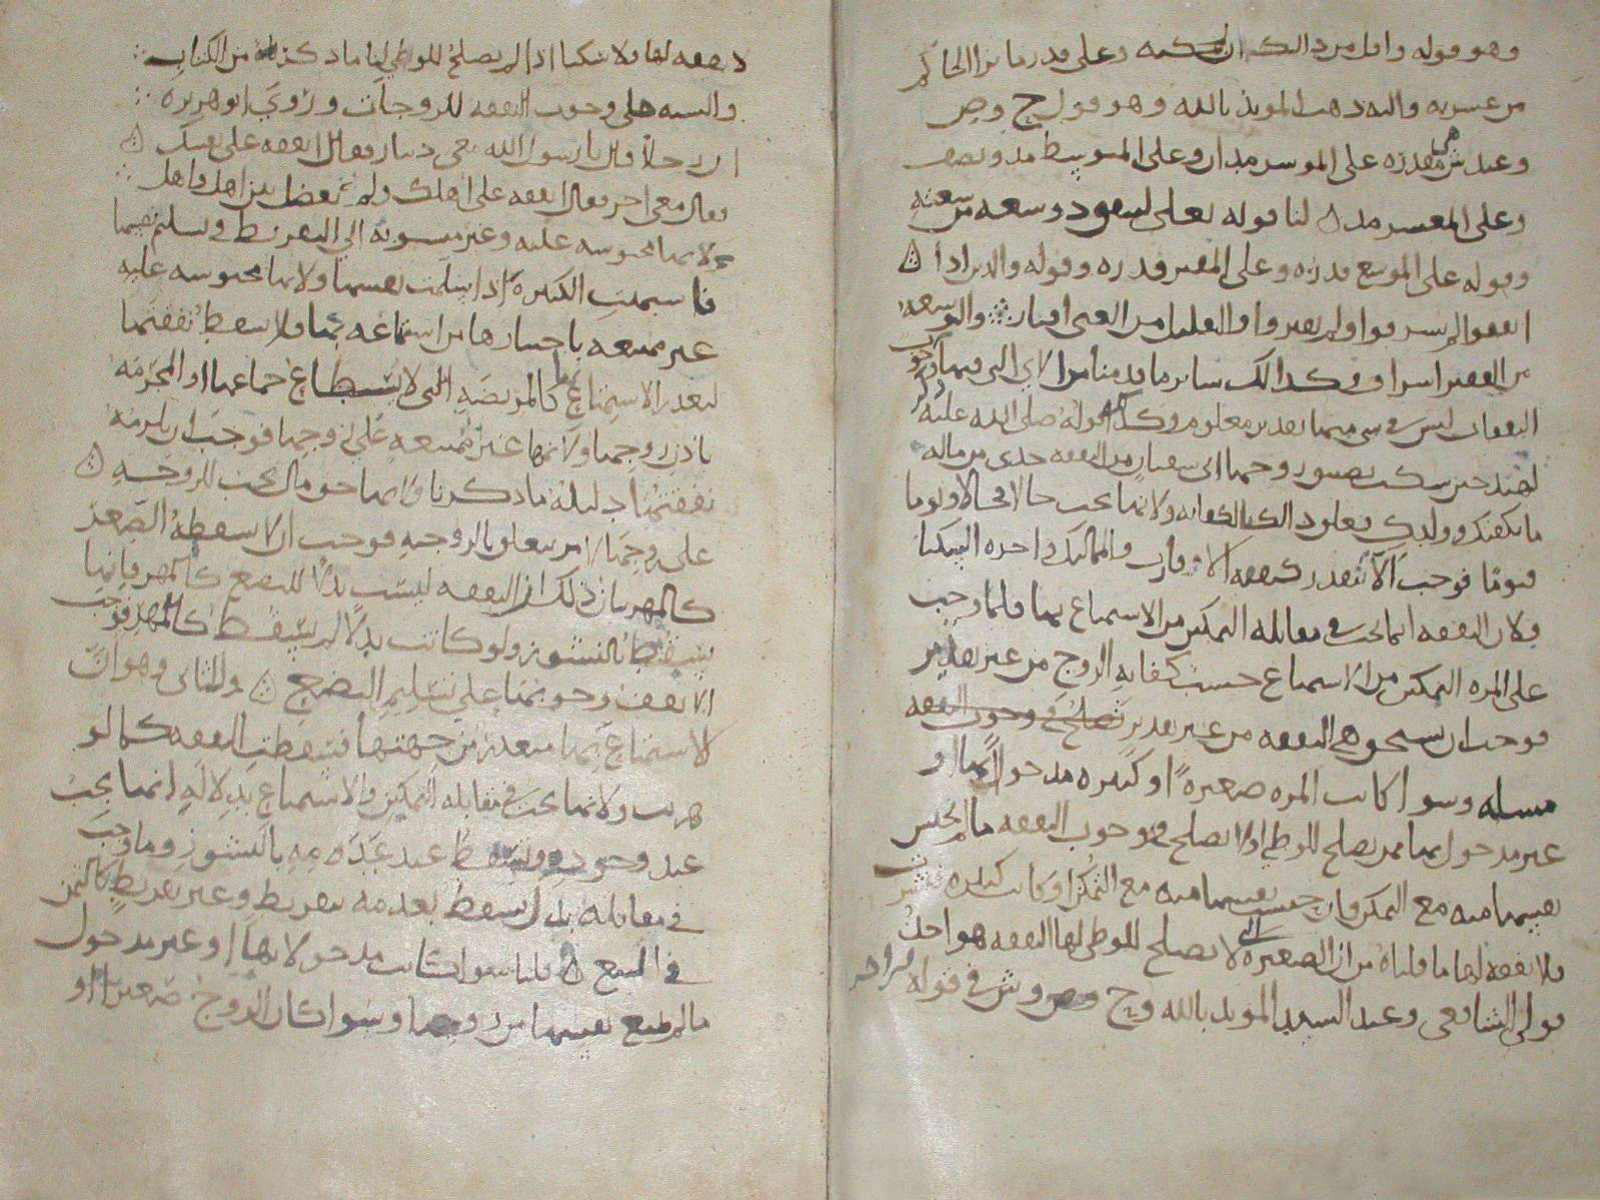 وهو قوله واقل من ذالك ان لحكمه وعلى قدر ما يرا الحاكم
من عسر به واليه ذهب المويد بالله وهو قول ح وص
وعند ش هي مقدره على الموسر مدان وعلى المتوسط مد ونصف
وعلى المعسر مد لنا قوله تعلى لينفق ذو سعه من سعته
وقوله على الموسع قدره وعلى المقتر قدره وقوله والذين اذا
انفقوا لم يسرفوا ولم يقتروا والقليل من الغني اقتار والتوسعه
من الفقير اسراف وكذالك ساير ما قدمنا من الاي التي فيها ذكر وجوب
النفقات ليس في شي منها تقدير معلوم وكذا قوله صلى الله عليه
لهند حين سكت زوجها ابي سفيان من النفقه خذي من ماله
ما يكفيك وولدك فعلق ذالك بالكفايه ولانها تجب حالا فحالا ويوما
فيوما فوجب الا تتقدر كنفقه الاقارب والمماليك واحده السكنا
ولان النفقه انما تجب في مقابله التمكين من الاستمتاع بها فلما وجب
على المره التمكين من الاستمتاع حسب كفايه الزوج من غير تقدير
فوجب ان تستحق هي النفقه من غير تقدير تصلح في وجوب النفقه
مسله وسوا كانت المره صغيره او كبيره مدخولا بها او
غير مدخول بها ممن تصلح للوطي او لا تصلح في وجوب النفقه ما لم تحبس
نفسها منه مع التمكن فان حبست نفسها منه مع التمكن وكانت كبيره نشزت
فلا نفقه لها ما قلناه من ان الصغيره التي لا تصلح للوطي لها النفقه هو احد
قولي الشافعي وعند السيد المويد بالله وح وص وش في قوله الاخر
لا نفقه لها ولا سكنا اذا لم تصلح للوطي لنا ما ذكرناه من الكتاب
والسنه على وجوب النفقه للزوجات وروي ابو هريره
ان رجلا قال يا رسول الله معي دينار فقال انفقه على نفسك
فقال معي اخر فقال انفقه على اهلك ولم يفصل بين اهل واهل
ولانها محبوسه عليه وغير منسوبه الى التفريط في تسليم نفسها
فاشبهت الكبيره اذا سلمت نفسها ولانها محبوسه عليه
غير ممتنعه باختيارها من استمتاعه بها فلا تسقط نفقتها
لتعذر الاستمتاع بها كالمريضه التي لا يستطاع جماعها او المحرمه
باذن زوجها ولانها غير ممتنعه على زوجها فوجب ان يلزمه
نفقتها دليله ما ذكرنا ولانها حق مال يجب للزوجه
على زوجها لامر يتعلق بالزوجيه فوجب ان لا يسقطه الصغر
كالمهر بيان ذلك ان النفقه ليست بدلا للبضع كالمهر فانها
تسقط بالنشوز ولو كانت بدلا لم تسقط كالمهر فوجب
الا يقف وجوبها على تسليم البضع والثاني وهو ان
الاستمتاع بها متعذر من جهتها فسقطت النفقه كما لو
هربت ولانها تجب في مقابله التمكين والاستمتاع بدلاله انها تجب
عند وجوده وتسقط عند عدمه بالنشوز وما وجب
في مقابله بدل سقط بعدمه بتفريط وغير تفريط كالثمن
في البيع قلنا سوا كانت مدخولا بها او غير مدخول
ما لم تمنع نفسها من زوجها وسوا كان الزوج صغيرا او